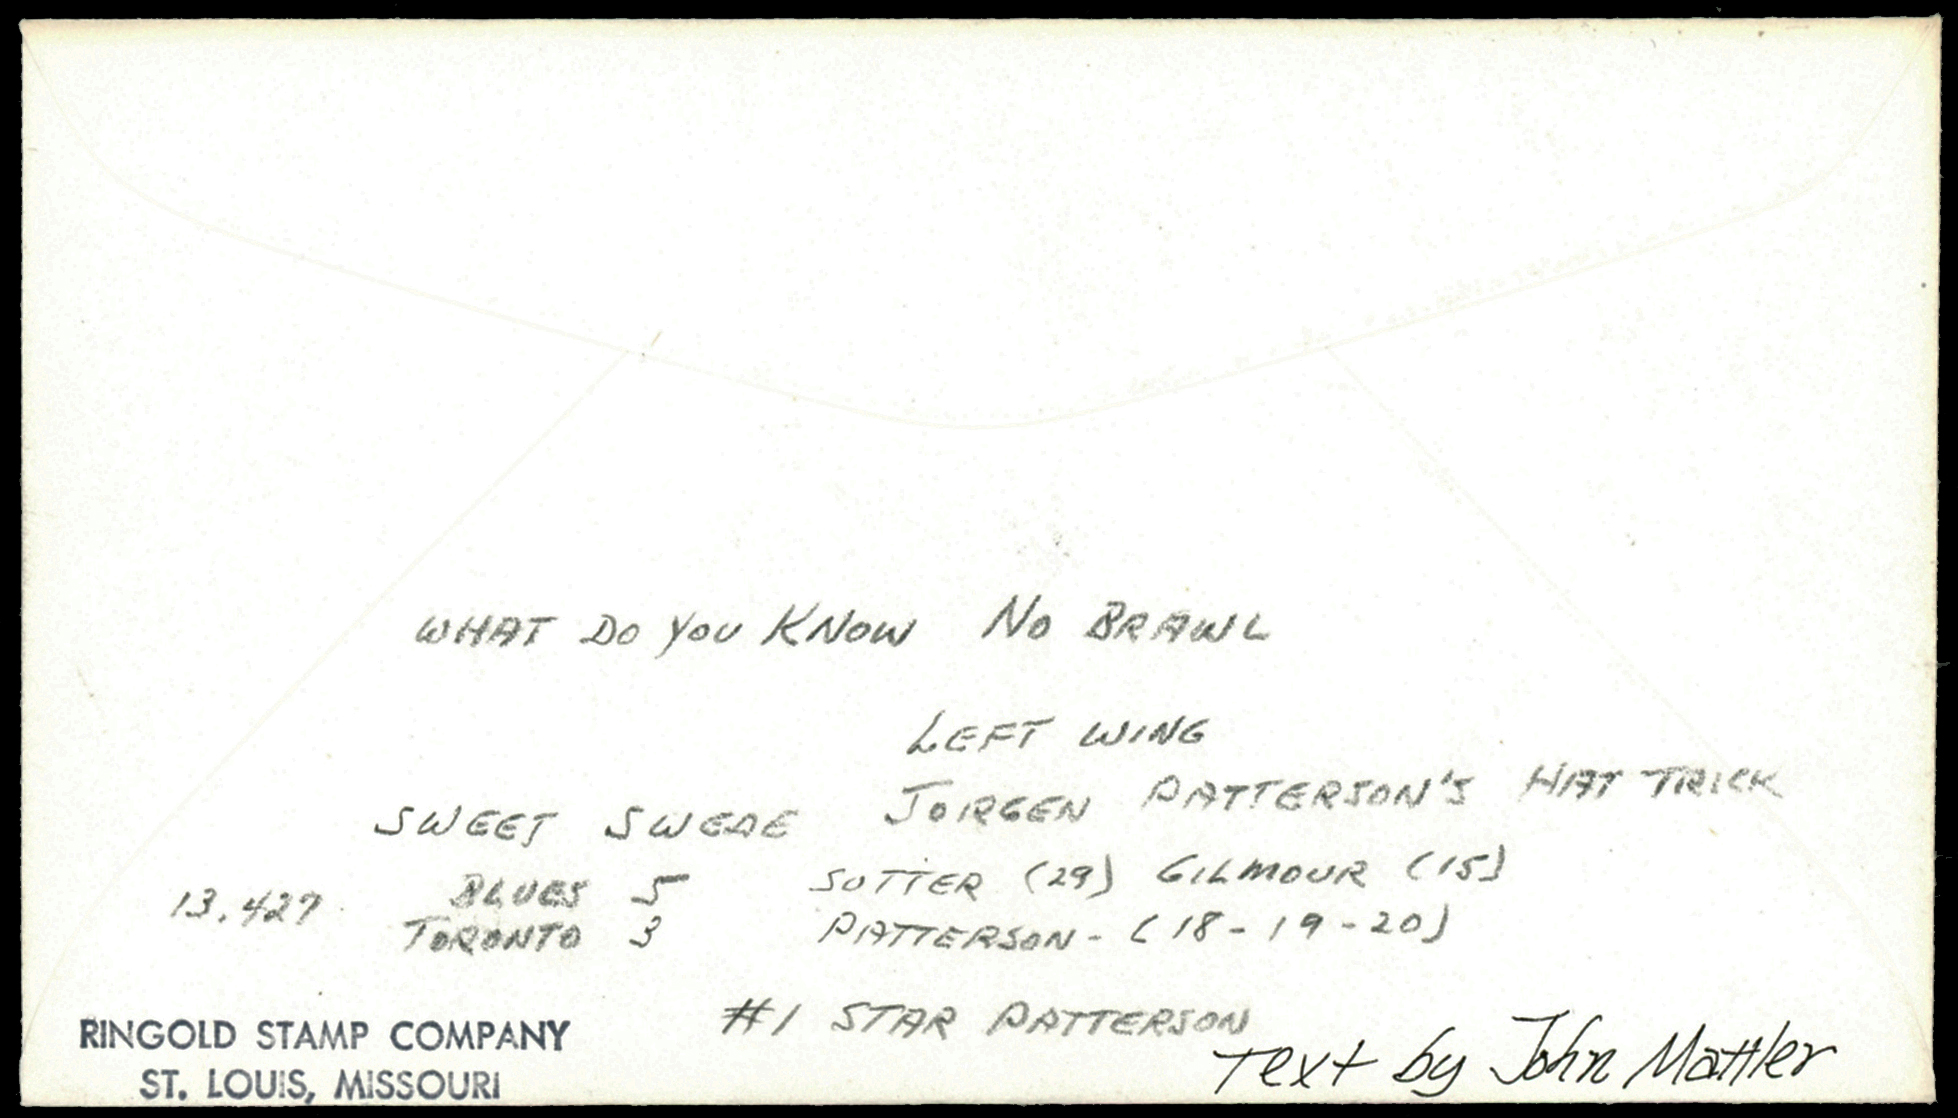 WHAT DO YOU KNOW NO BRAWL
LEFT WING
SWEET SWEDE JORGEN PATTERSON'S HAT TRICK
13,427 BLUES 5 SUTTER (29) GILMOUR (15)
TORONTO 3 PATTERSON - (18-19-20)
#1 STAR PATTERSON
Text by John Mattler
RINGOLD STAMP COMPANY
ST. LOUIS, MISSOURI